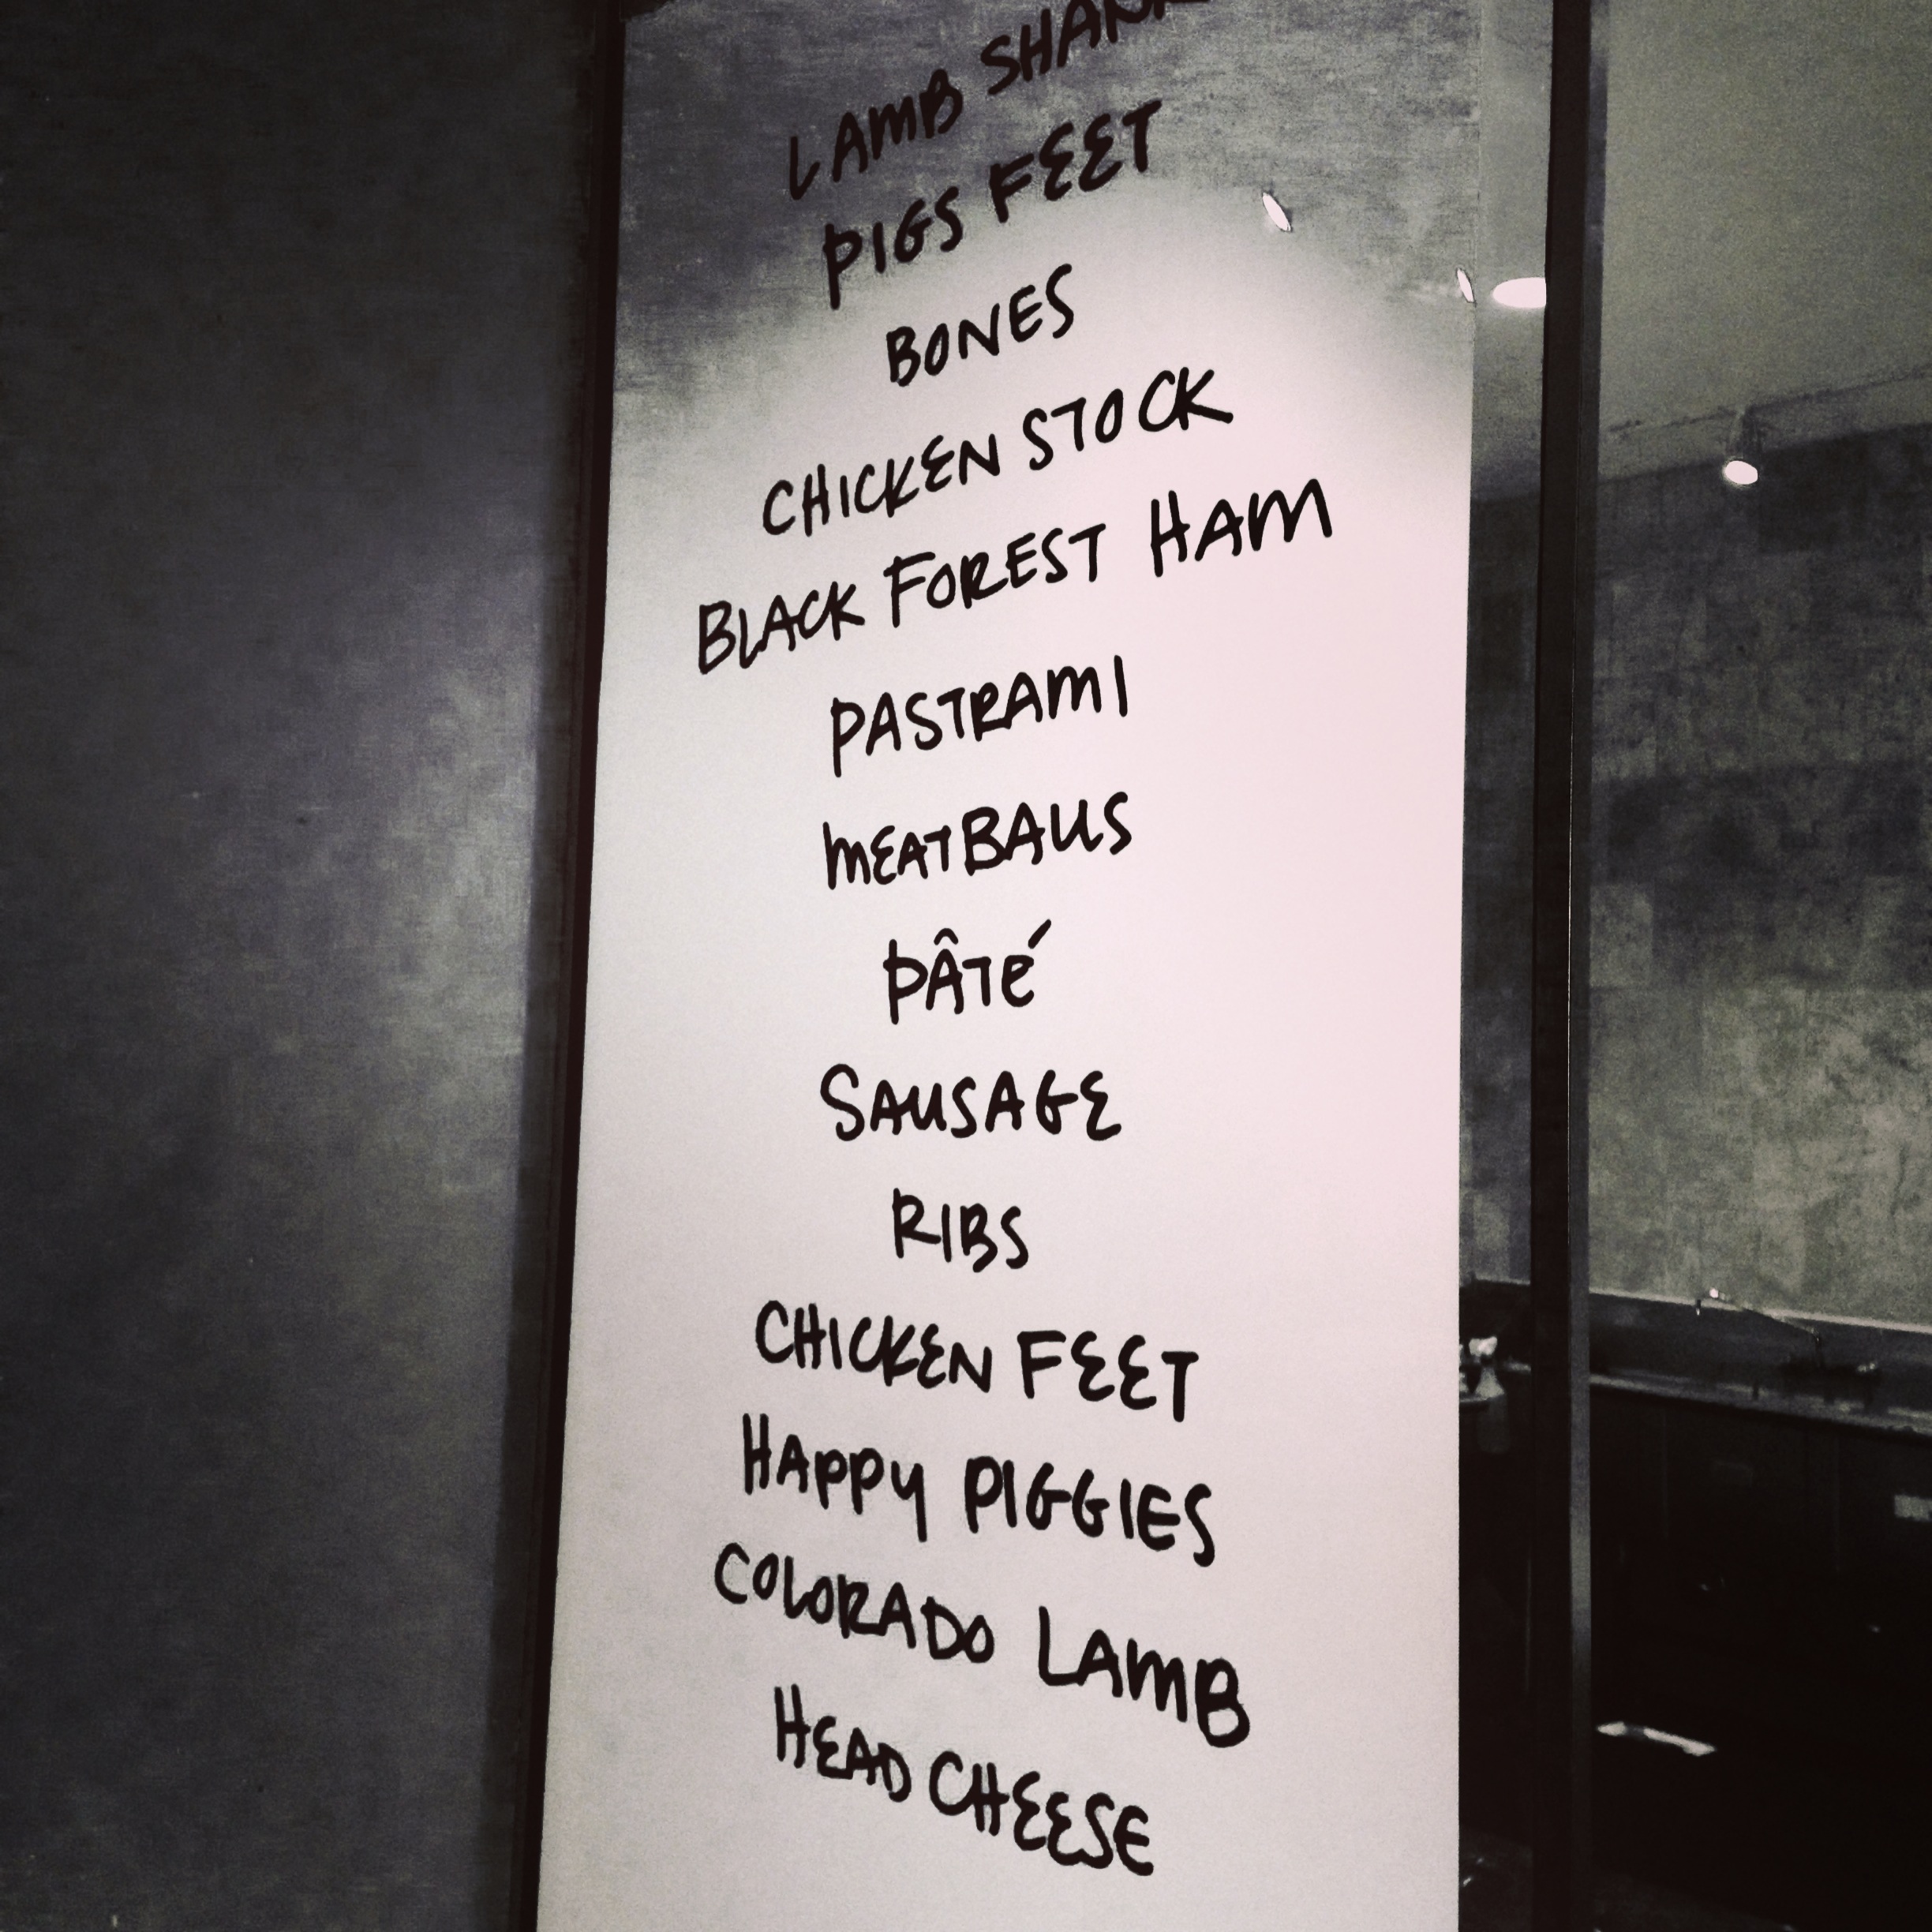 LAMB SHANK
PIGS FEET
BONES
CHICKEN STOCK
BLACK FOREST HAM
PASTRAMI
MEATBALLS
PÂTÉ
SAUSAGE
RIBS
CHICKEN FEET
HAPPY PIGGIES
COLORADO LAMB
HEAD CHEESE